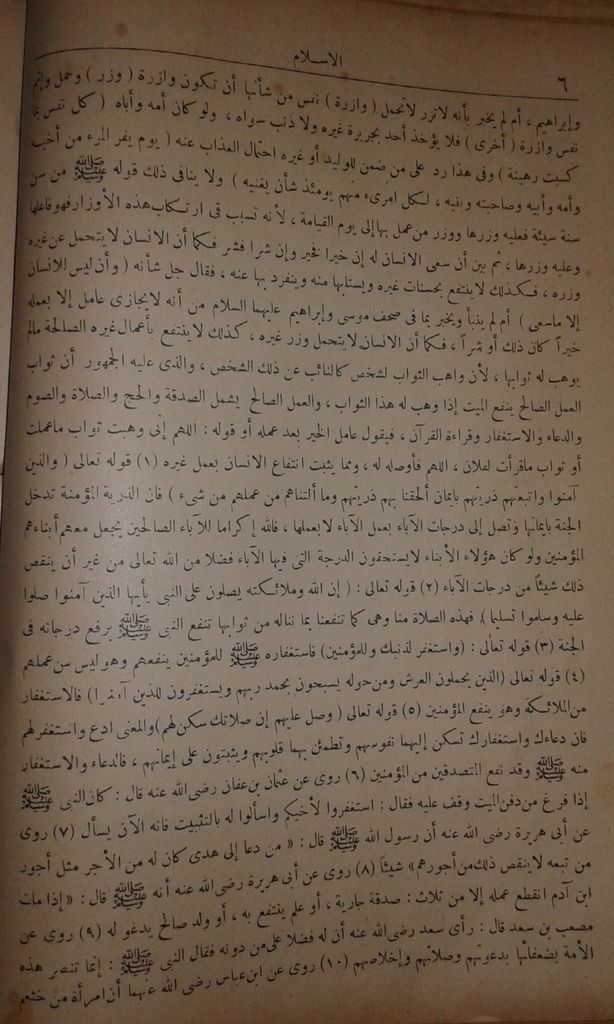 ٦
الاسلام
وإبراهيم ، أم لم يخبر بأنه لا تزر لا تحمل ( وازرة ) نفس من شأنها أن تكون وازرة ( وزر ) وحمل وإثم
نفس وازرة ( أخرى ) فلا يؤخذ أحد بجريرة غيره ولا ذنب سواه ، ولو كان أمه وأباه ( كل نفس بما
كسبت رهينة ) وفى هذا رد على من ضمن للوليد أو غيره احتمال العذاب عنه ( يوم يفر المرء من أخيه
وأمه وأبيه وصاحبته وبنيه ، لكل امرىء منهم يومئذ شأن يغنيه ) ولا ينافى ذلك قوله ﷺ من سن
سنة سيئة فعليه وزرها ووزر من عمل بها إلى يوم القيامة ، لأنه تسبب فى ارتكاب هذه الأوزار فهو فاعلها
وعليه وزرها ، ثم بين أن سعى الانسان له إن خيرا فخير وإن شرا فشر فكما أن الانسان لا يتحمل عن غيره
وزره ، فكذلك لا ينتفع بحسنات غيره ويستلبها منه وينفرد بها عنه ، فقال جل شأنه ( وأن ليس للانسان
إلا ما سعى ) أم لم ينبأ ويخبر بما فى صحف موسى وإبراهيم عليهما السلام من أنه لا يجازى عامل إلا بعمله
خيراً كان ذلك أو شراً ، فكما أن الانسان لا يتحمل وزر غيره ، كذلك لا ينتفع بأعمال غيره الصالحة مالم
يوهب له ثوابها ، لأن واهب الثواب لشخص كالنائب عن ذلك الشخص ، والذى عليه الجمهور أن ثواب
العمل الصالح ينفع الميت إذا وهب له هذا الثواب ، والعمل الصالح يشمل الصدقة والحج والصلاة والصوم
والدعاء والاستغفار وقراءة القرآن ، فيقول عامل الخير بعد عمله أو قوله : اللهم إنى وهبت ثواب ما عملت
أو ثواب ما قرأت لفلان ، اللهم فأوصله له ، ومما يثبت انتفاع الانسان بعمل غيره (١) قوله تعالى ( والذين
آمنوا واتبعتهم ذريتهم بايمان ألحقنا بهم ذريتهم وما ألتناهم من عملهم من شىء ) فان الذرية المؤمنة تدخل
الجنة بايمانها وتصل إلى درجات الآباء بعمل الآباء لا بعملها ، فالله إكراما للآباء الصالحين يجعل معهم أبناءهم
المؤمنين ولو كان هؤلاء الأبناء لا يستحقون الدرجة التى فيها الآباء فضلا من الله تعالى من غير أن ينقص
ذلك شيئاً من درجات الآباء (٢) قوله تعالى : ( إن الله وملائكته يصلون على النبى يأيها الذين آمنوا صلوا
عليه وسلموا تسليما ) فهذه الصلاة منا وهى كما تنفعنا بما نناله من ثوابها تنفع النبى ﷺ برفع درجاته فى
الجنة (٣) قوله تعالى : (واستغفر لذنبك وللمؤمنين) فاستغفاره ﷺ للمؤمنين ينفعهم وهو ليس من عملهم
(٤) قوله تعالى (الذين يحملون العرش ومن حوله يسبحون بحمد ربهم ويستغفرون للذين آمنوا) فالاستغفار
من الملائكة وهو ينفع المؤمنين (٥) قوله تعالى ( وصل عليهم إن صلاتك سكن لهم) والمعنى ادع واستغفر لهم
فان دعاءك واستغفارك تسكن إليهما نفوسهم وتطمئن بهما قلوبهم ويثبتون على إيمانهم ، فالدعاء والاستغفار
منه ﷺ وقد نفع المتصدقين من المؤمنين (٦) روى عن عثمان بن عفان رضى الله عنه قال : كان النبى ﷺ
إذا فرغ من دفن الميت وقف عليه فقال : استغفروا لأخيكم واسألوا له بالتثبيت فانه الآن يسأل (٧) روى
عن أبى هريرة رضى الله عنه أن رسول الله ﷺ قال : « من دعا إلى هدى كان له من الأجر مثل أجور
من تبعه لا ينقص ذلك من أجورهم» شيئاً (٨) روى عن أبى هريرة رضى الله عنه أنه ﷺ قال : « إذا مات
ابن آدم انقطع عمله إلا من ثلاث : صدقة جارية ، أو علم ينتفع به ، أو ولد صالح يدعو له (٩) روى عن
مصعب بن سعد قال : رأى سعد رضى الله عنه أن له فضلا على من دونه فقال النبى ﷺ : إنما تنصر هذه
الأمة بضعفائها بدعوتهم وصلاتهم وإخلاصهم (١٠) روى عن ابن عباس رضى الله عنهما أن امرأة من خثعم